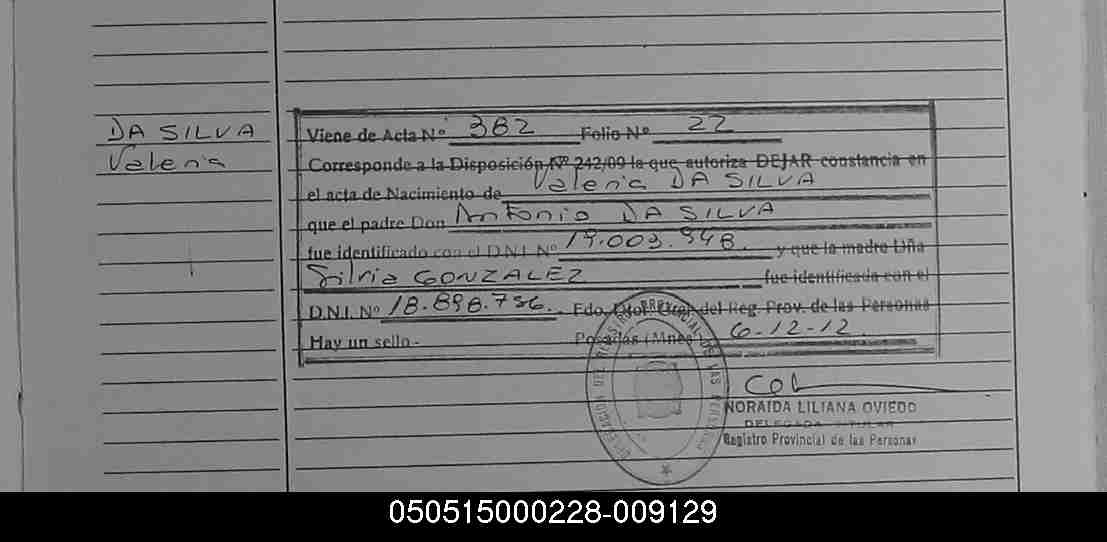 DA SILVA
Valeria
Viene de Acta Nº 382 Folio Nº 22
Corresponde a la Disposición Nº 242/09 la que autoriza DEJAR constancia en
el acta de Nacimiento de Valeria DA SILVA
que el padre Don Antonio DA SILVA
fue identificado con el D.N.I. Nº 19.003.948. y que la madre Dña
Silvia GONZALEZ fue identificada con el
D.N.I. Nº 18.898.756. Fdo. Gral. del Reg. Prov. de las Personas
Hay un sello.- Posadas (Mnes) 6-12-12
NORAIDA LILIANA OVIEDO
DELEGADA TITULAR
Registro Provincial de las Personas
050515000228-009129